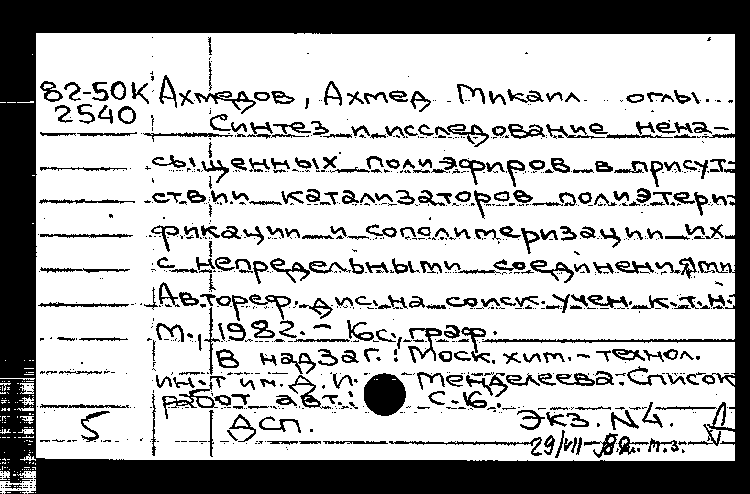 82-50К Ахмедов, Ахмед Микаил оглы...
2540 Синтез и исследование нена-
сыщенных полиэфиров в присут-
ствии катализаторов полиэтери-
фикации и сополимеризации их
с непредельными соединениями
Автореф. дис. на соиск. учен. к.т.н.
М., 1982. - 16с, граф.
В надзаг.: Моск. хим. - технол.
ин-т им. Д. И. Менделеева. Список
работ авт.: с. 16.
5 ДСП. Экз. N4.
29/VII-82г. т.з.